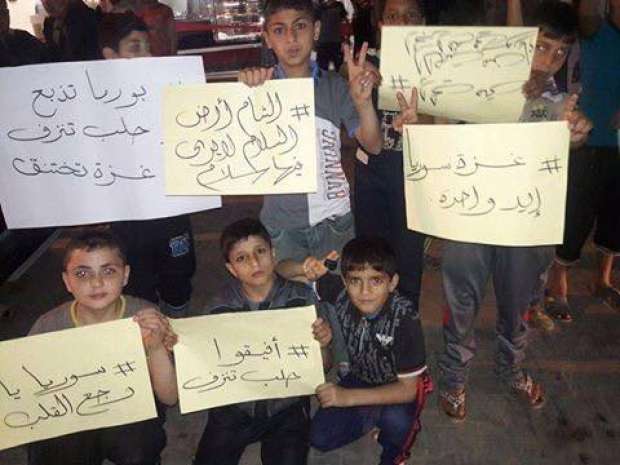 # سوريا تذبع
حلب تنزف
غزة تختنق
# الشام أرض
السلام لا يرى
فيها سلام
#
# غزة سوريا
إيد واحده.
# سوريا يا
وجع القلب
# أفيقوا
حلب تنزف